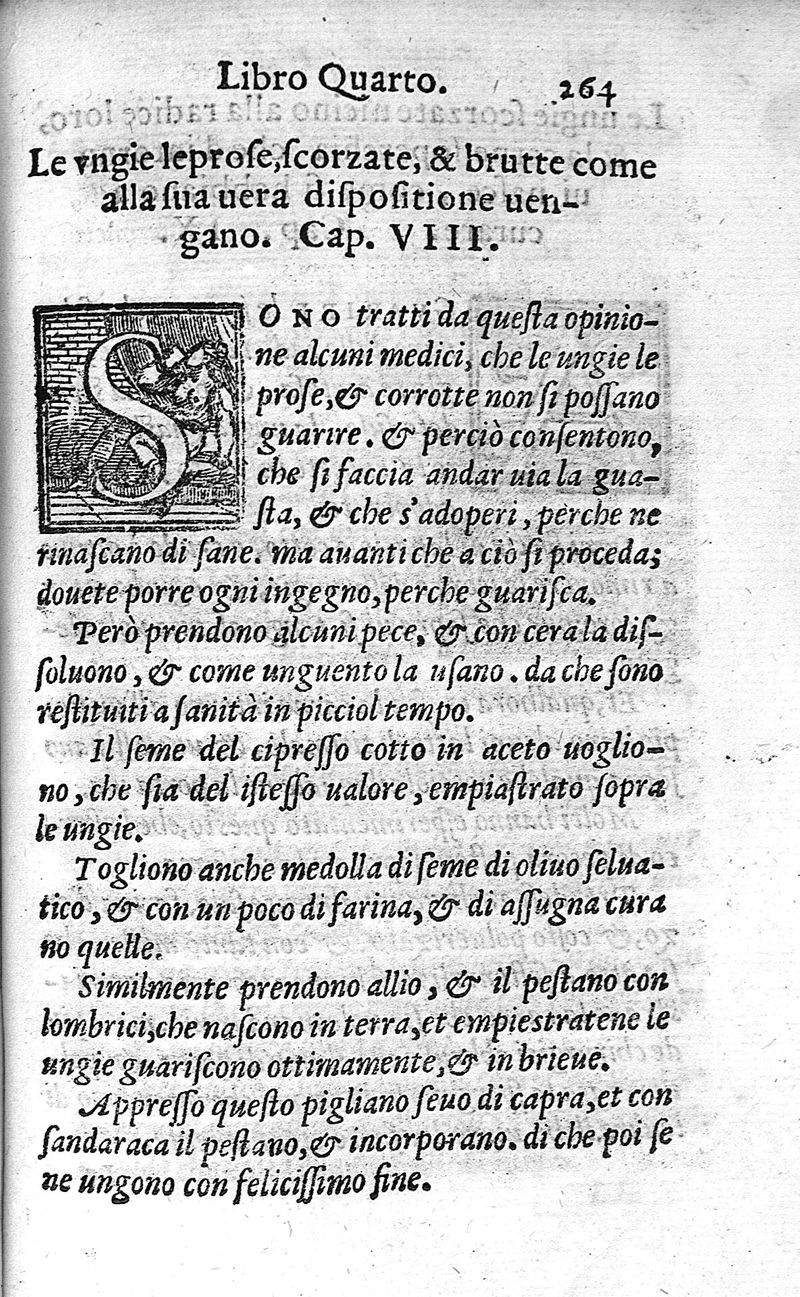 Libro Quarto. 264
Le vngie leprose, scorzate, & brutte come
alla sua uera dispositione uen-
gano. Cap. VIII.
SONO tratti da questa opinio-
ne alcuni medici, che le ungie le
prose, & corrotte non si possano
guarire. & perciò consentono,
che si faccia andar uia la gua-
sta, & che s'adoperi, perche ne
rinascano di sane. ma auanti che a ciò si proceda;
douete porre ogni ingegno, perche guarisca.
Però prendono alcuni pece, & con cera la dis-
soluono, & come unguento la usano. da che sono
restituiti a sanità in picciol tempo.
Il seme del cipresso cotto in aceto uoglio-
no, che sia del istesso ualore, empiastrato sopra
le ungie.
Togliono anche medolla di seme di oliuo selua-
tico, & con un poco di farina, & di assugna cura
no quelle.
Similmente prendono allio, & il pestano con
lombrici, che nascono in terra, et empiestratene le
ungie guariscono ottimamente, & in brieue.
Appresso questo pigliano seuo di capra, et con
sandaraca il pestano, & incorporano. di che poi se
ne ungono con felicissimo fine.